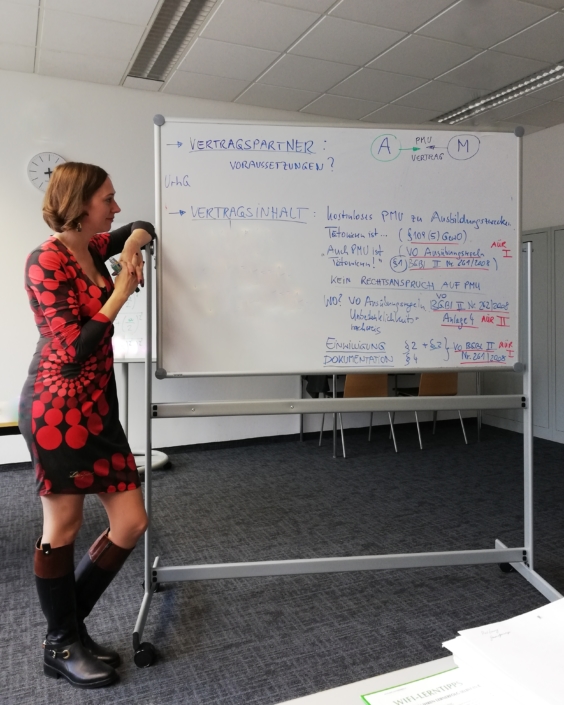 → VERTRAGSPARTNER:
VORAUSSETZUNGEN?
A PMU M
VERTRAG
UrhG
→ VERTRAGSINHALT: kostenloses PMU zu Ausbildungszwecken
Tätowieren ist... (§109(5) GewO)
"Auch PMU ist (VO Ausübungsregeln NUR I
Tätowieren!" §1 BGBl II Nr. 261/2008)
KEIN RECHTSANSPRUCH AUF PMU
WO? VO Ausübungsregeln VO BGBl II Nr. 262/2008
Anlage 4 NUR II
EINWILLIGUNG §2 + §3 VO BGBl II NUR I
DOKUMENTATION §4 Nr. 261/2008
WIFI-LERNTIPP